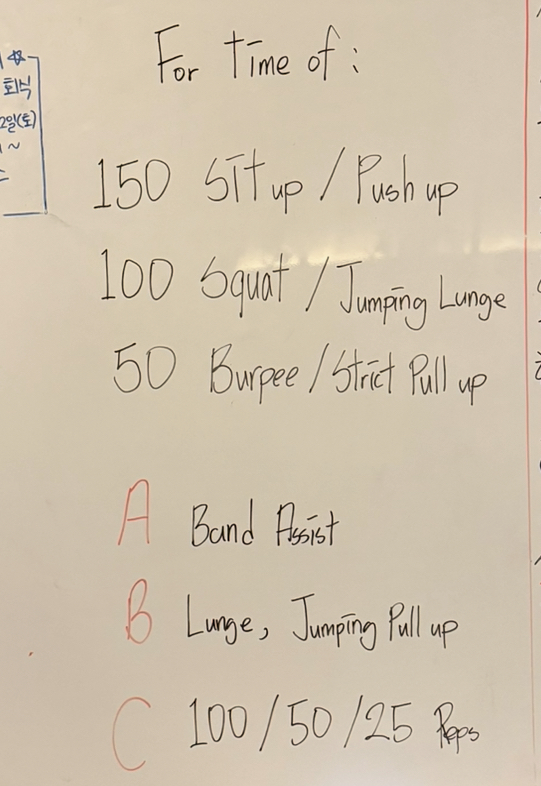 회식
2일(토)
~
For Time of :
150 Sit up / Push up
100 Squat / Jumping Lunge
50 Burpee / Strict Pull up
A Band Assist
B Lunge, Jumping Pull up
C 100 / 50 / 25 Reps